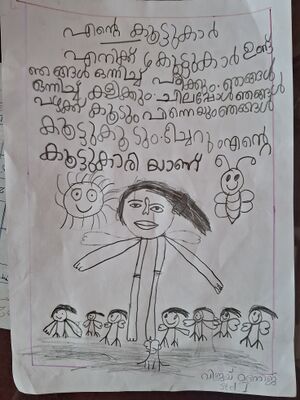 എന്റെ കൂട്ടുകാർ
എനിക്ക് 7 കൂട്ടുകാർ ഉണ്ട്
ഞങ്ങൾ ഒന്നിച്ച് പഠിക്കും. ഞങ്ങൾ
ഒന്നിച്ച് കളിക്കും. ചിലപ്പോൾ ഞങ്ങൾ
കൂടും പിന്നെയും ഞങ്ങൾ
കൂട്ടുകൂടും. ടീച്ചറും എന്റെ
കൂട്ടുകാരി യാണ്
വിജയ്
std I